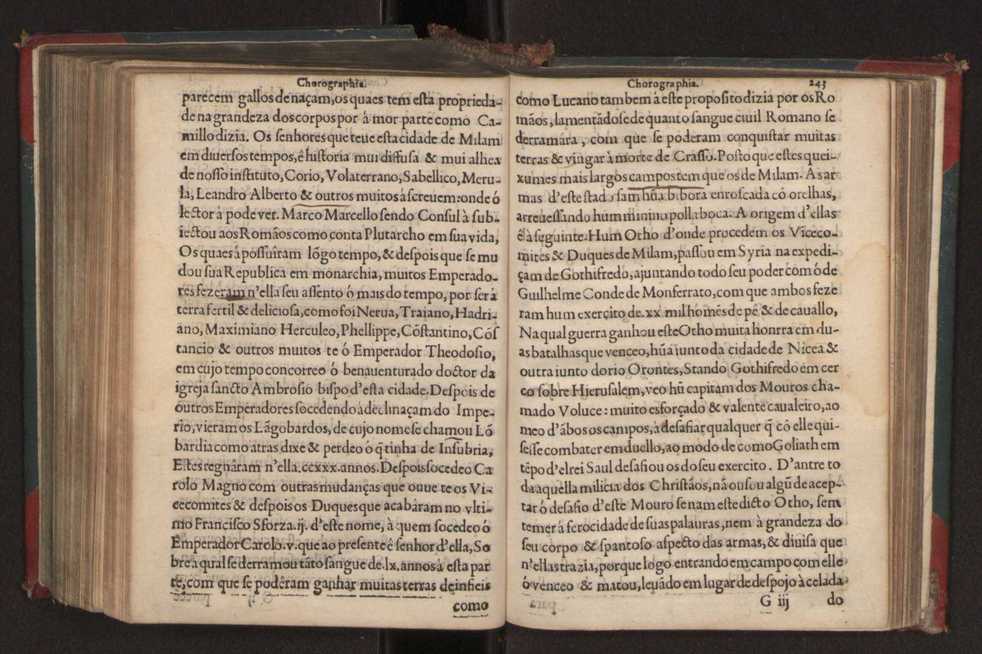 Chorographia.
parecem gallos de naçam, os quaes tem esta proprieda-
de na grandeza dos corpos por à mor parte como Ca-
millo dizia. Os senhores que teue esta cidade de Milam
em diuersos tempos, é historia mui diffusa & mui alhea
de nosso instituto, Corio, Volaterrano, Sabellico, Meru-
la, Leandro Alberto & outros muitos à screuem: onde ó
lector à pode ver. Marco Marcello sendo Consul à sub-
iectou aos Romãos como conta Plutarcho em sua vida,
Os quaes à possuîram lõgo tempo, & despois que se mu
dou sua Republica em monarchia, muitos Emperado-
res fezeram n'ella seu assento ó mais do tempo, por ser à
terra fertil & deliciosa, como foi Nerua, Traiano, Hadri-
ano, Maximiano Herculeo, Phellippe, Cõstantino, Cõs
tancio & outros muitos te ó Emperador Theodosio,
em cujo tempo concorreo ó benauenturado doctor da
igreja sancto Ambrosio bispo d'esta cidade. Despois de
outros Emperadores socedendo à declinaçam do Impe-
rio, vieram os Lãgobardos, de cujo nome se chamou Lõ
bardia como atras dixe & perdeo ó q̃ tinha de Insubria,
Estes regnâram n'ella. ccxxx. annos. Despois socedeo Ca
rolo Magno com outras mudanças que ouue te os Vi-
cecomites & despois os Duques que acabâram no vlti-
mo Francisco Sforza. ij. d'este nome, à quem socedeo ó
Emperador Carolo. v. que ao presente é senhor d'ella, So
bre a qual se derramou tãto sangue de. lx. annos à esta par
te, com que se podêram ganhar muitas terras de infieis
como
Chorographia. 243
como Lucano tambem à este proposito dizia por os Ro
mãos, lamentãdose de quanto sangue ciuil Romano se
derramâra, com que se poderam conquistar muitas
terras & vingar à morte de Crasso. Posto que estes quei-
xumes mais largos campos tem que os de Milam. As ar
mas d'este stado sam hũa bibora enroscada cõ orelhas,
arreuessando hum minino polla boca. A origem d'ellas
é à seguinte. Hum Otho d'onde procedem os Viceco-
mites & Duques de Milam, passou em Syria na expedi-
çam de Gothifredo, ajuntando todo seu poder com ó de
Guilhelme Conde de Monferrato, com que ambos feze
ram hum exercito de. xx. mil homẽs de pê & de cauallo,
Na qual guerra ganhou este Otho muita honrra em du-
as batalhas que venceo, hũa iunto da cidade de Nicea &
outra iunto do rio Orontes, Stando Gothifredo em cer
co sobre Hierusalem, veo hũ capitam dos Mouros cha-
mado Voluce: muito esforçado & valente caualeiro, ao
meo d'ãbos os campos, à desafiar qualquer q̃ cõ elle qui-
sesse combater em duello, ao modo de como Goliath em
tẽpo d'elrei Saul desafiou os do seu exercito. D'antre to
da aquella milicia dos Christãos, nã ousou algũ de acep-
tar ó desafio d'este Mouro se nam este dicto Otho, sem
temer à ferocidade de suas palauras, nem à grandeza do
seu corpo & spantoso aspecto das armas, & diuisa que
n'ellas trazia, porque logo entrando em campo com elle
ó venceo & matou, leuãdo em lugar de despojo à celada
G iij do